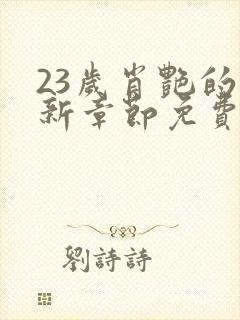 23歲肖艷的
新章節免費
劉詩詩